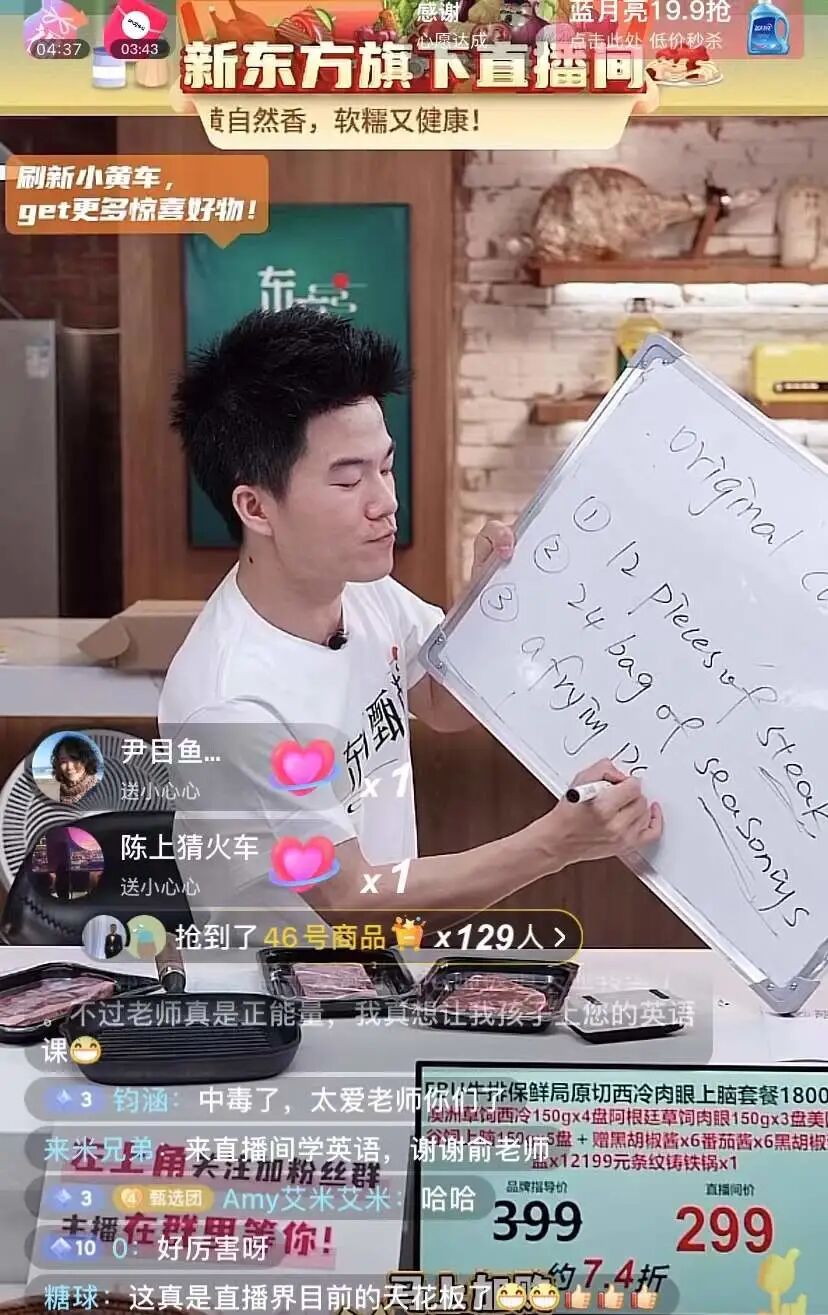 04:37
03:43
感谢
心愿达成
蓝月亮19.9抢
点击此处 低价秒杀
新东方旗下直播间
自然香，软糯又健康！
刷新小黄车，
get更多惊喜好物！
东
original
① 12 pieces of steak
② 24 bag of seasonings
③ a frying
甄
尹目鱼...
送小心心
x 1
陈上猜火车
送小心心
x 1
抢到了 46号商品 x129人 >
。不过老师真是正能量，我真想让我孩子上您的英语
课
3 钧涵：中毒了，太爱老师你们了
来米兄弟：来直播间学英语，谢谢俞老师
3 4 甄选团 Amy艾米艾米：哈哈
10 0：好厉害呀
糖球：这真是直播界目前的天花板了
左上角关注加粉丝群
主播在群里等你！
牛排保鲜局原切西冷肉眼上脑套餐1800
澳洲草饲西冷150gx4盘阿根廷草饲肉眼150gx3盘美
5盘＋赠黑胡椒酱x6番茄酱x6黑胡椒
x12199元条纹铸铁锅x1
品牌指导价
399
直播间价
299
约7.4折